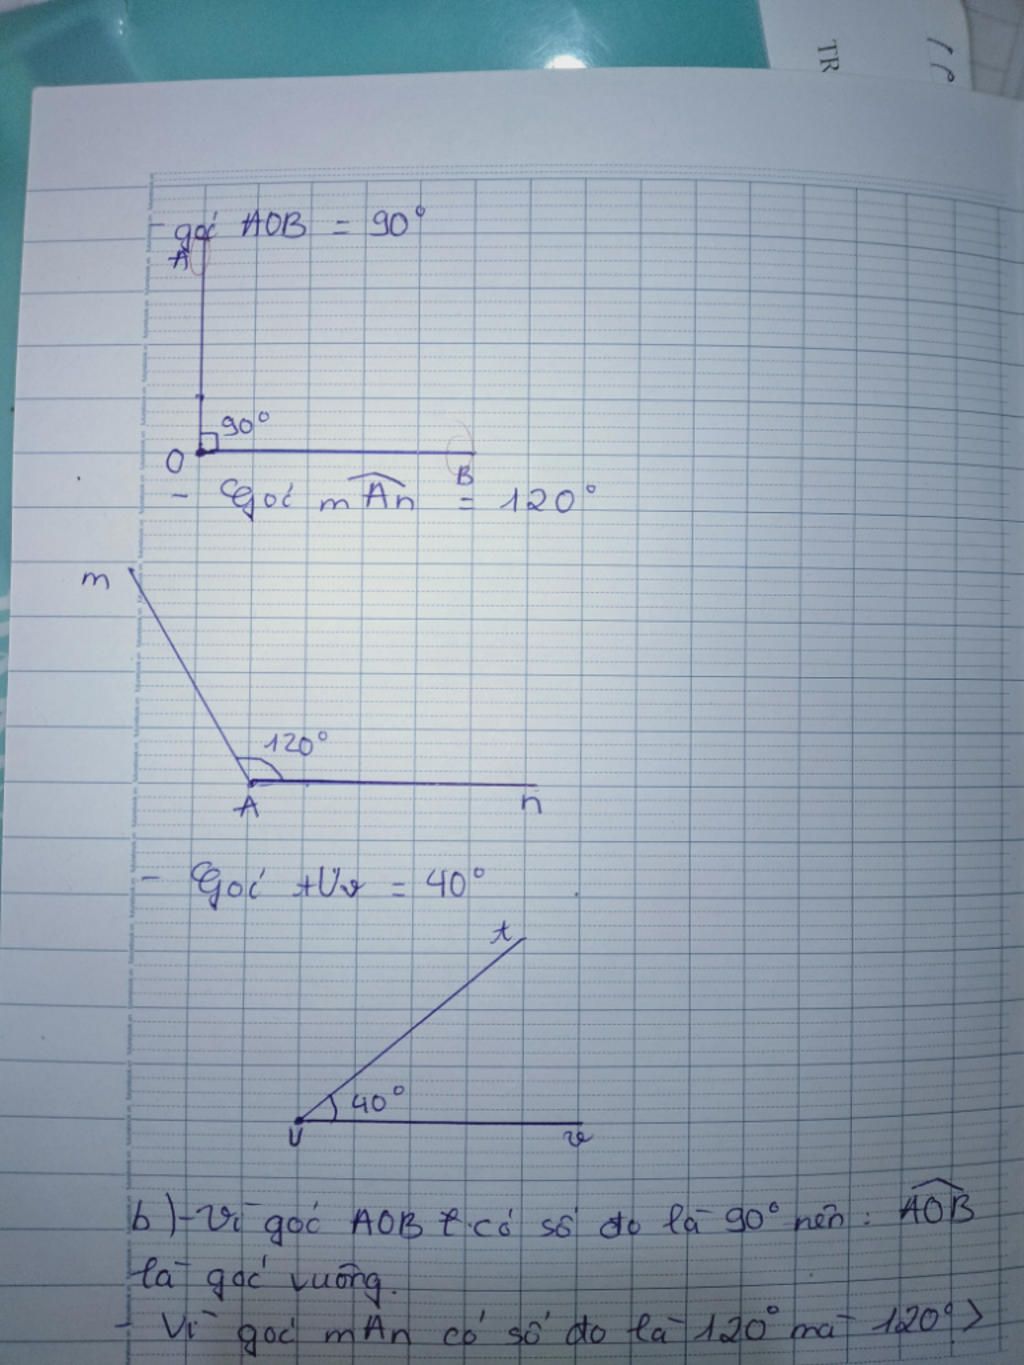 TR
- góc AOB = 90°
A
90°
O
B
- Góc mAn = 120°
m
120°
A
n
- Góc tUv = 40°
t
40°
U
v
b) - Vì góc AOB có số đo là 90° nên : AOB
là góc vuông.
- Vì góc mAn có số đo là 120° mà 120° >